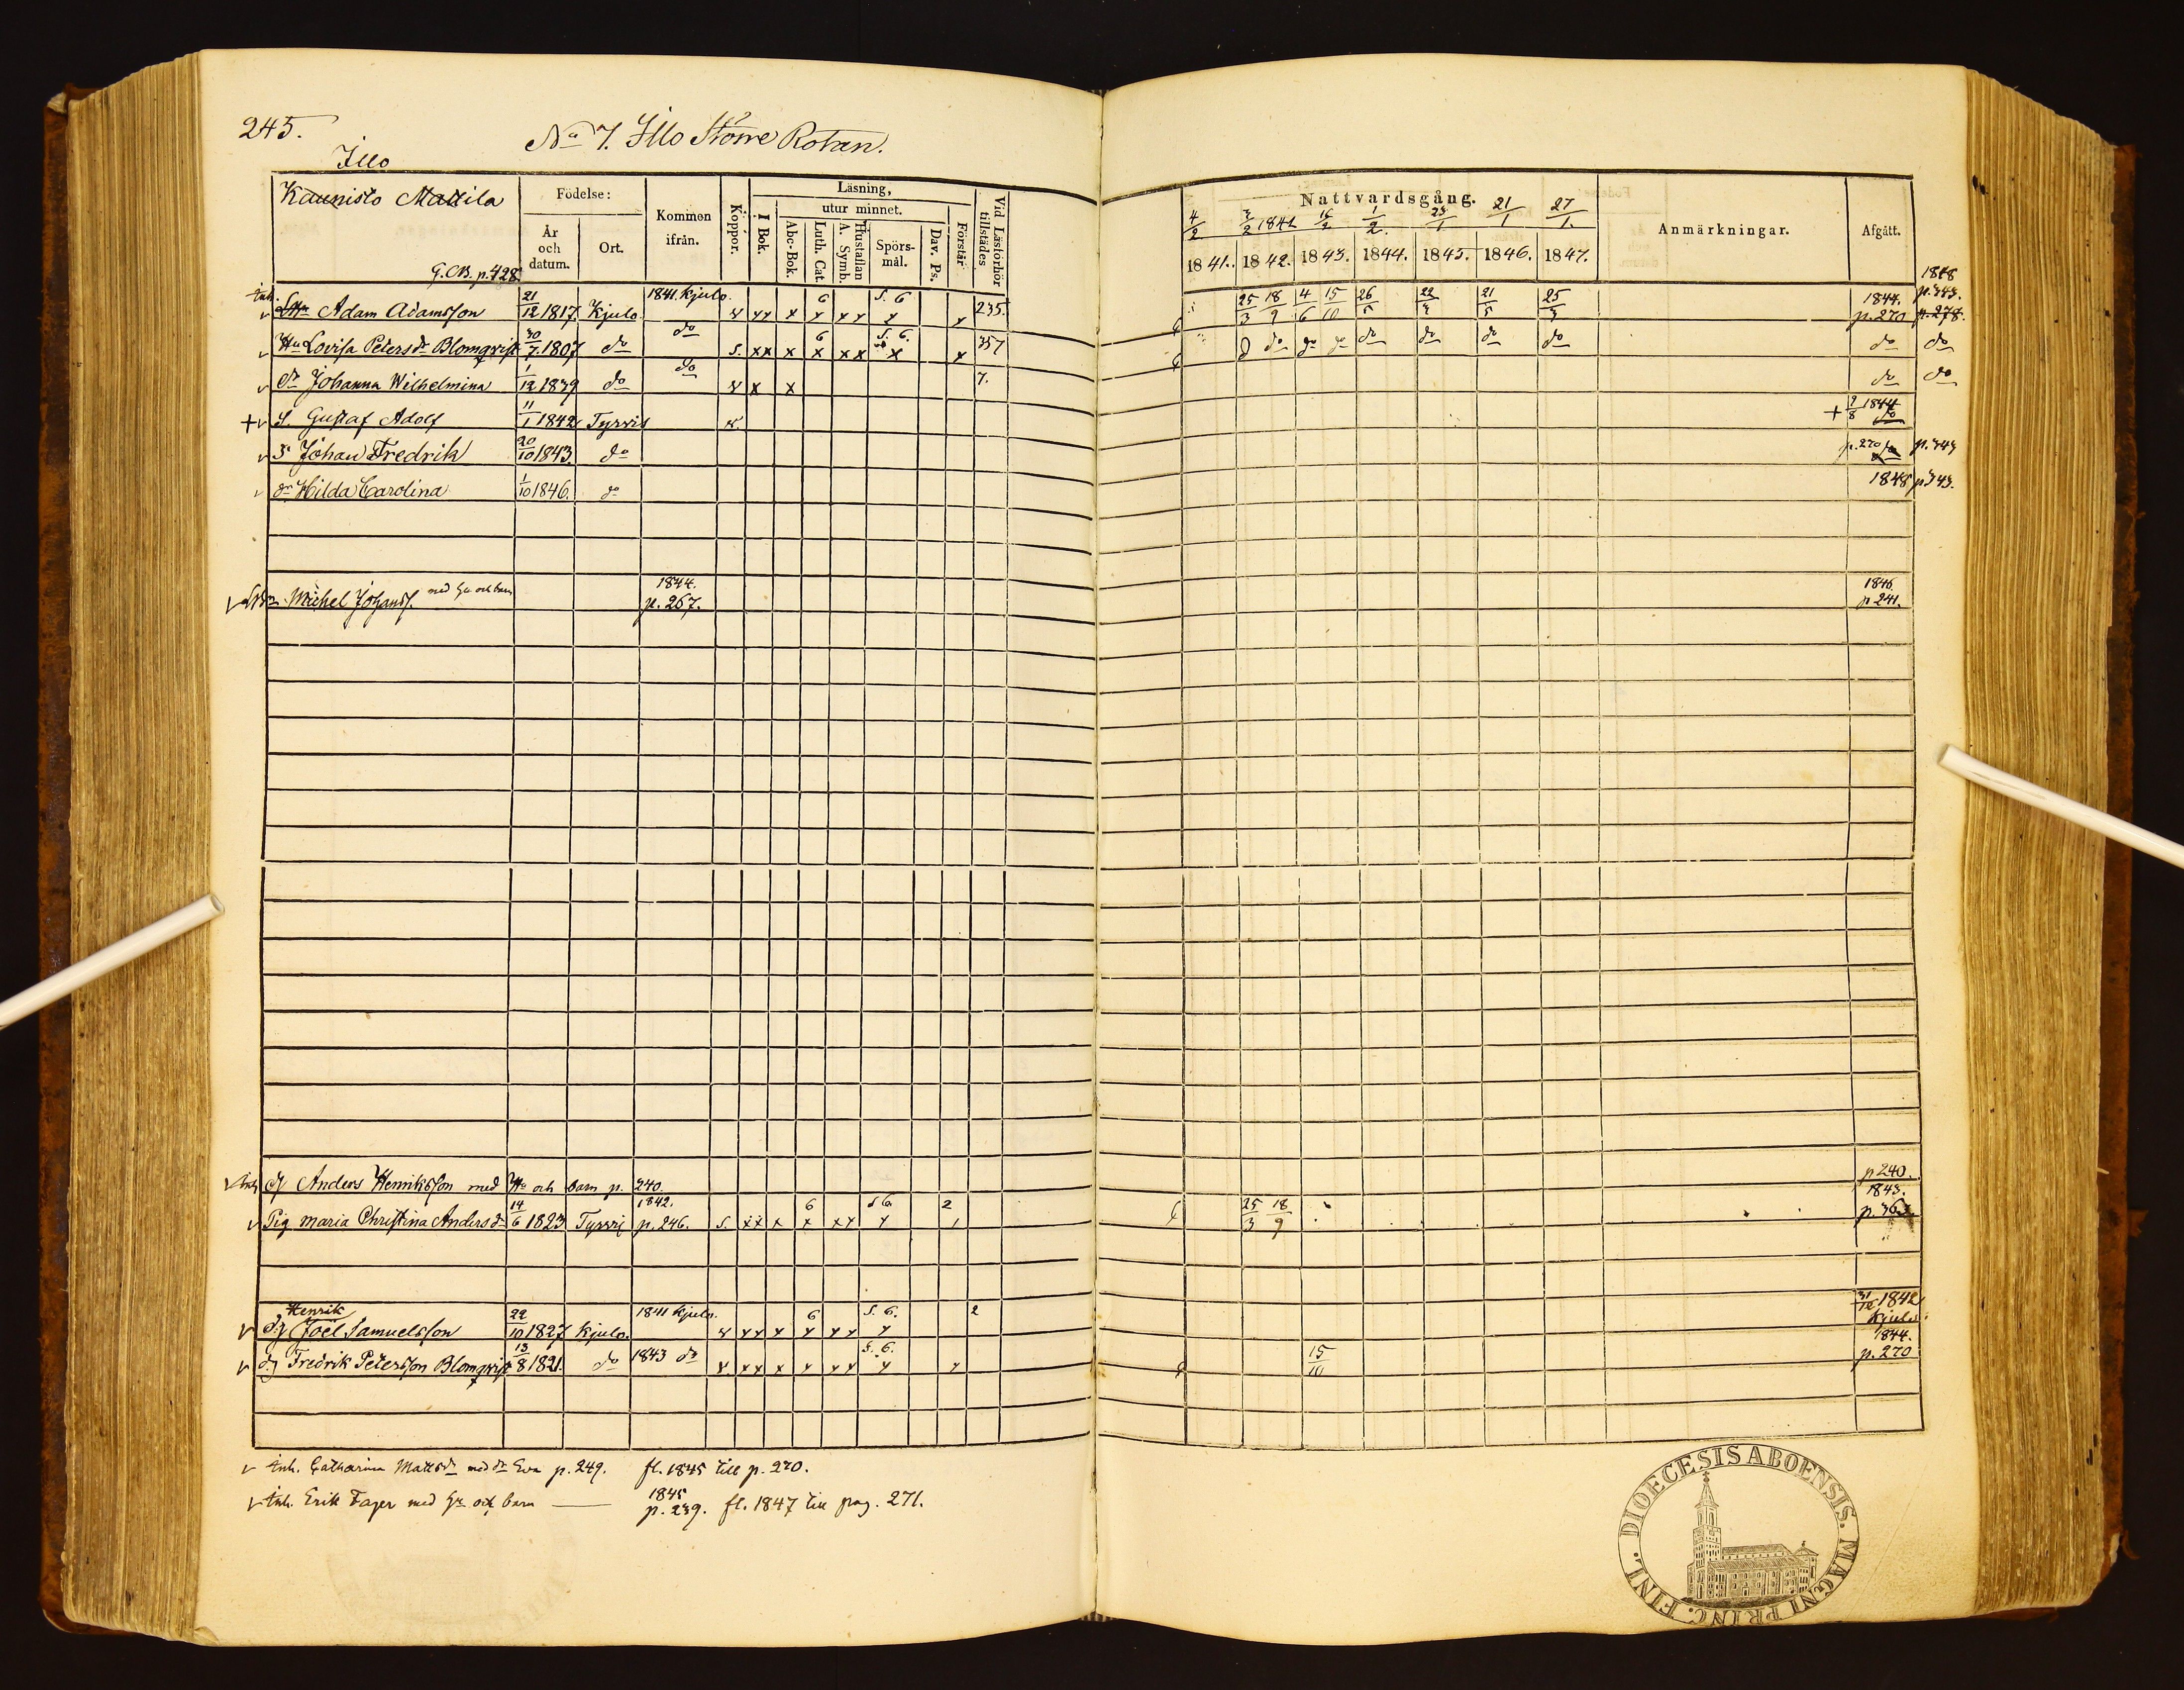 245. No 7. Illo Större Rotan.
Illo
Kaunisto Mattila
G.CB. p. 428
Födelse:
År och datum.
Ort.
Kommen ifrån.
Koppor.
Läsning,
I Bok.
utur minnet.
Abc-Bok.
Luth. Cat.
Hustaflan A. Symb.
Spörsmål.
Dav. Ps.
Förstår
Vid Läsförhör tillstädes
Nattvardsgång.
4/2 3/2 1842 16/2 1/2. 23/1 21/1 27/1.
1841. 1842. 1843. 1844. 1845. 1846. 1847.
Anmärkningar.
Afgått.
Inh. Adam Adamsson 21/12 1817. Kjulo 1841. Kjulo. 6 S. 6 235. 25/3 18/9 4/6 15/10 26/5 22/3 21/5 25/3 1844. p. 270 1848 p. 343. p. 278.
v Hu Lovisa Petersdr Blomqvist 30/7. 1807 do do S. xx x 6 x xx S. 6. x x 357 do do do do do do do do do
v dr Johanna Wilhelmina 1/12 1839 do do x x 7. do do
+ v S. Gustaf Adolf 11/1 1842 Tyrvis + 2/8 1844
v S. Johan Fredrik 20/10 1843. do p. 270 p. 343
v dr Hilda Carolina 1/10 1846. do 1848 p 343.
v Michel Johanss. med hu och barn 1844. p. 267. 1846. p 241.
v Inh Anders Henriksson med Hu och barn p. 240 p 240.
v Pig Maria Christina Andersdr 14/6 1823 Tyrvis 1842. p. 246. S. xx x 6 x xx S 6 2 25/3 18/9 1843. p. 363
Henrik
v Dg Joel Samuelsson 22/10 1827 Kjulo. 1841 Kjulo. 6 S. 6. 2 31/12 1842 Kjulo.
v dg Fredrik Petersson Blomqvist 13/8 1821. do 1843 do S. 6. 15/10 1844. p. 270
v Inh. Catharina Mattsdr med dr Eva p. 249. fl. 1845 till p. 270.
v Inh. Erik Fager med hu och barn — 1845 p. 239. fl. 1847 till pag. 271.
DIOECESIS ABOENSIS. MAGNI PRINC. FINL.